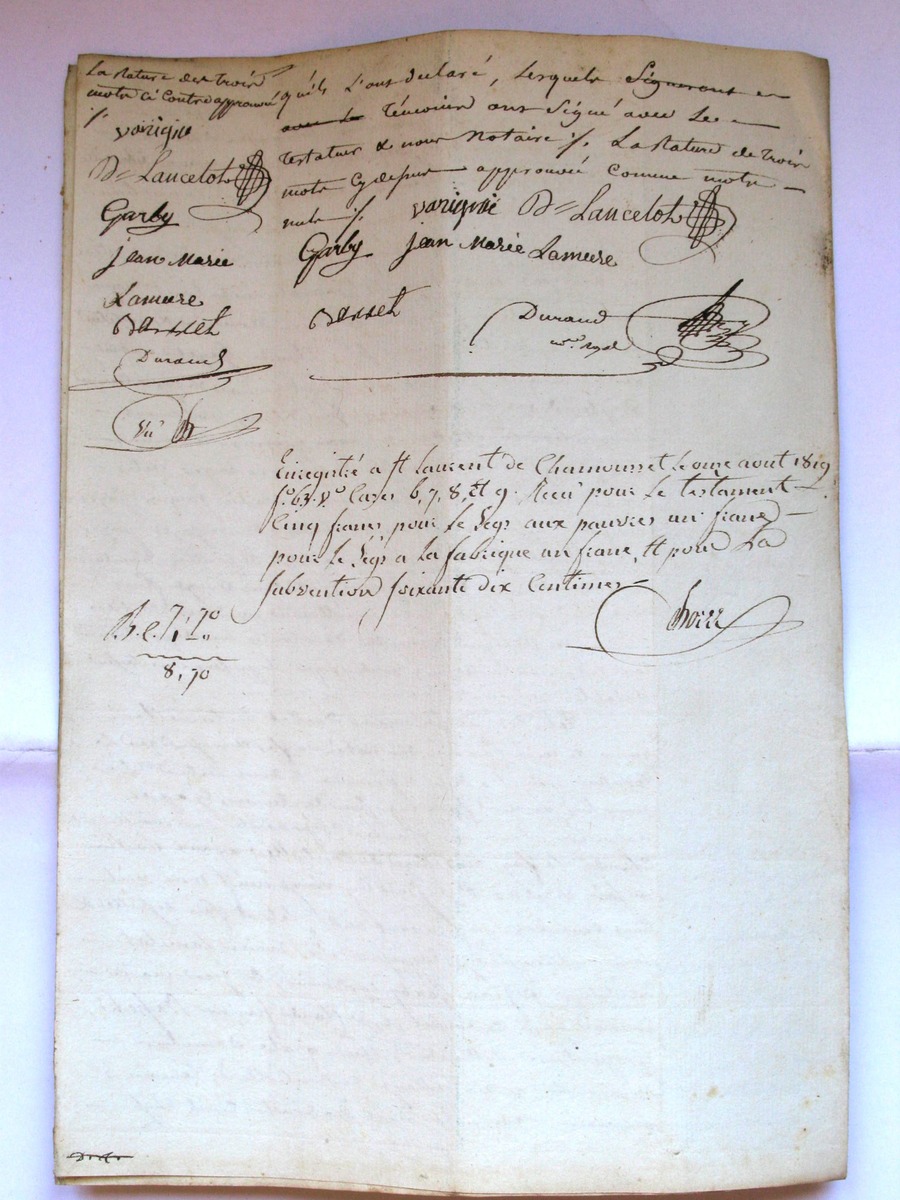 La Rature des trois
mots ci contre approuvé
/.
varigne
Dʳ Lancelot
Garby
jean Marie
Lameure
Basset
Durand
Vu
qu'ils L'ont declaré, Lesquels Signeront
avec Les Témoins ont Signé avec Le
Testateur & nous Notaire /. La Rature de trois
mots Cydessus approuvée Comme mots
nuls /.
varigne Dʳ Lancelot
Garby jean Marie Lameure
Basset
Durand
nʳᵉ Royal
Enregistré a St Laurent de Chamousset le onze aout 1819
fº 63 vº Cases 6, 7, 8, et 9. Recu pour le testament
Cinq francs pour le Legs aux pauvres un franc
pour le Legs a la fabrique un franc, Et pour La
subvention soixante dix Centimes
8,70